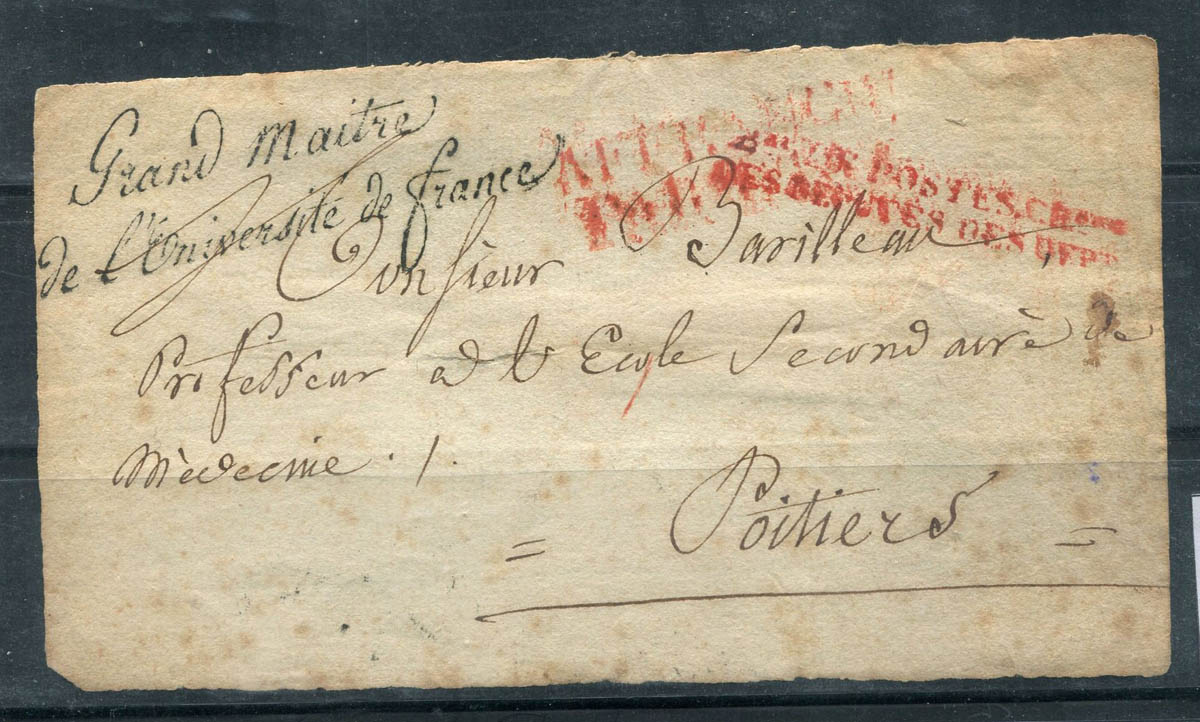 Grand Maitre
de l'Université de france
DE POSTES, CH
DES DÉPUTÉS DES DEPT
Monsieur Barilleau,
Professeur a l' Ecole Secondairè de
Mèdecine . /.
= Poitiers =